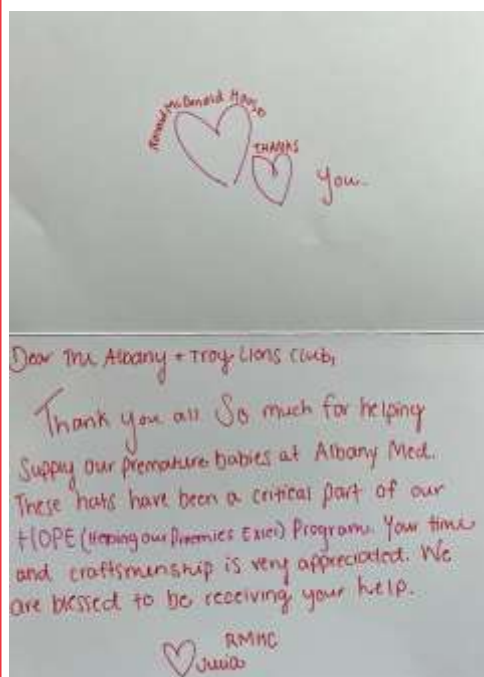 Ronald McDonald House
THANKS
You.
Dear The Albany + Troy Lions Club,
Thank you all So much for helping
Supply our premature babies at Albany Med.
These hats have been a critical part of our
HOPE (Helping our Preemies Excel) Program. Your time
and craftsmenship is very appreciated. We
are blessed to be receiving your help.
RMHC
Julia